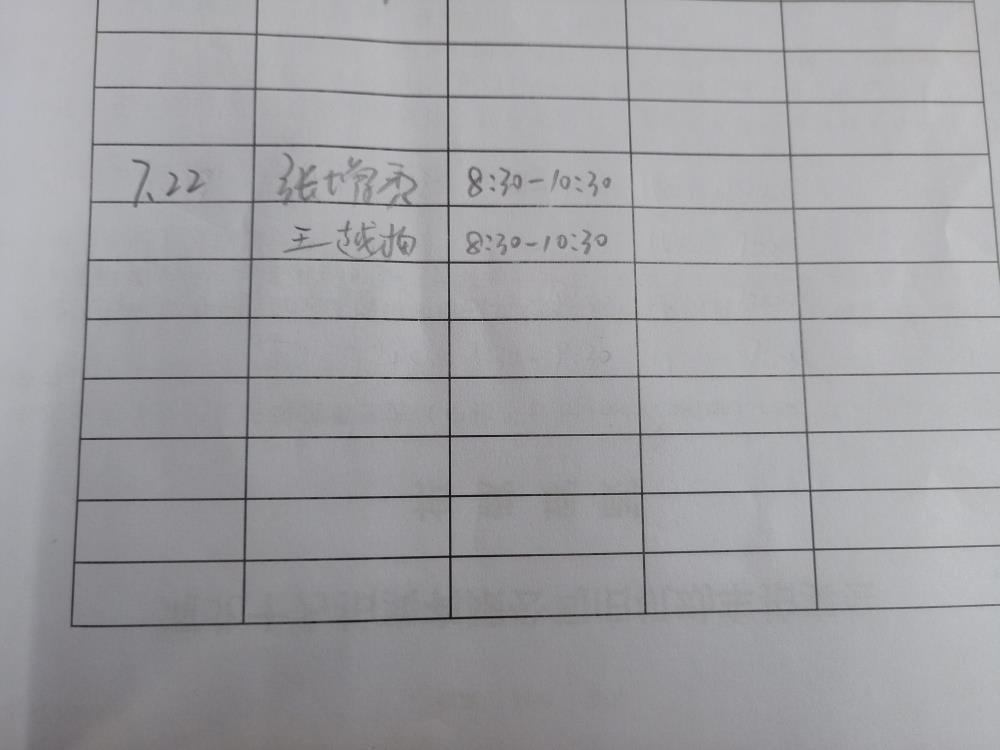 7.22 张增秀 8:30-10:30
王越 8:30-10:30